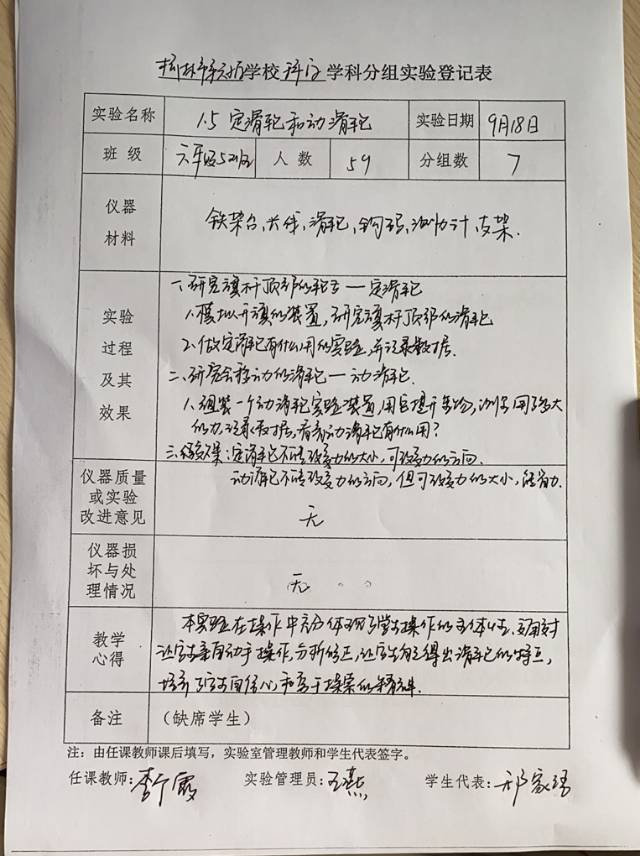 学校 科学 学科分组实验登记表
实验名称 1.5 定滑轮和动滑轮 实验日期 9月18日
班 级 六年级5班 人 数 59 分组数 7
仪器
材料
铁架台,大线,滑轮,钩码,测力计,支架.
实验
过程
及其
效果
一.研究旗杆顶部的轮子——定滑轮
1.模拟升旗的装置,研究旗杆顶部的滑轮
2.做定滑轮有什么用的实验,并记录数据.
二.研究会移动的滑轮—动滑轮.
1.组装一个动滑轮实验装置,用多大
的力,记录数据,看看动滑轮有什么用?
三.效果:定滑轮不能改变力的大小,可改变力的方向.
动滑轮不能改变力的方向,但可改变力的大小,能省力.
仪器质量
或实验
改进意见
无
仪器损
坏与处
理情况
无
教学
心得
本实验在操作中充分体现了学生操作的主体性
让学生亲自动手操作,分析修正,让学生自主得出滑轮的特点,
培养了学生自信心,和勇于探索的精神.
备注 (缺席学生)
注:由任课教师课后填写,实验室管理教师和学生代表签字。
任课教师: 实验管理员:王燕 学生代表: